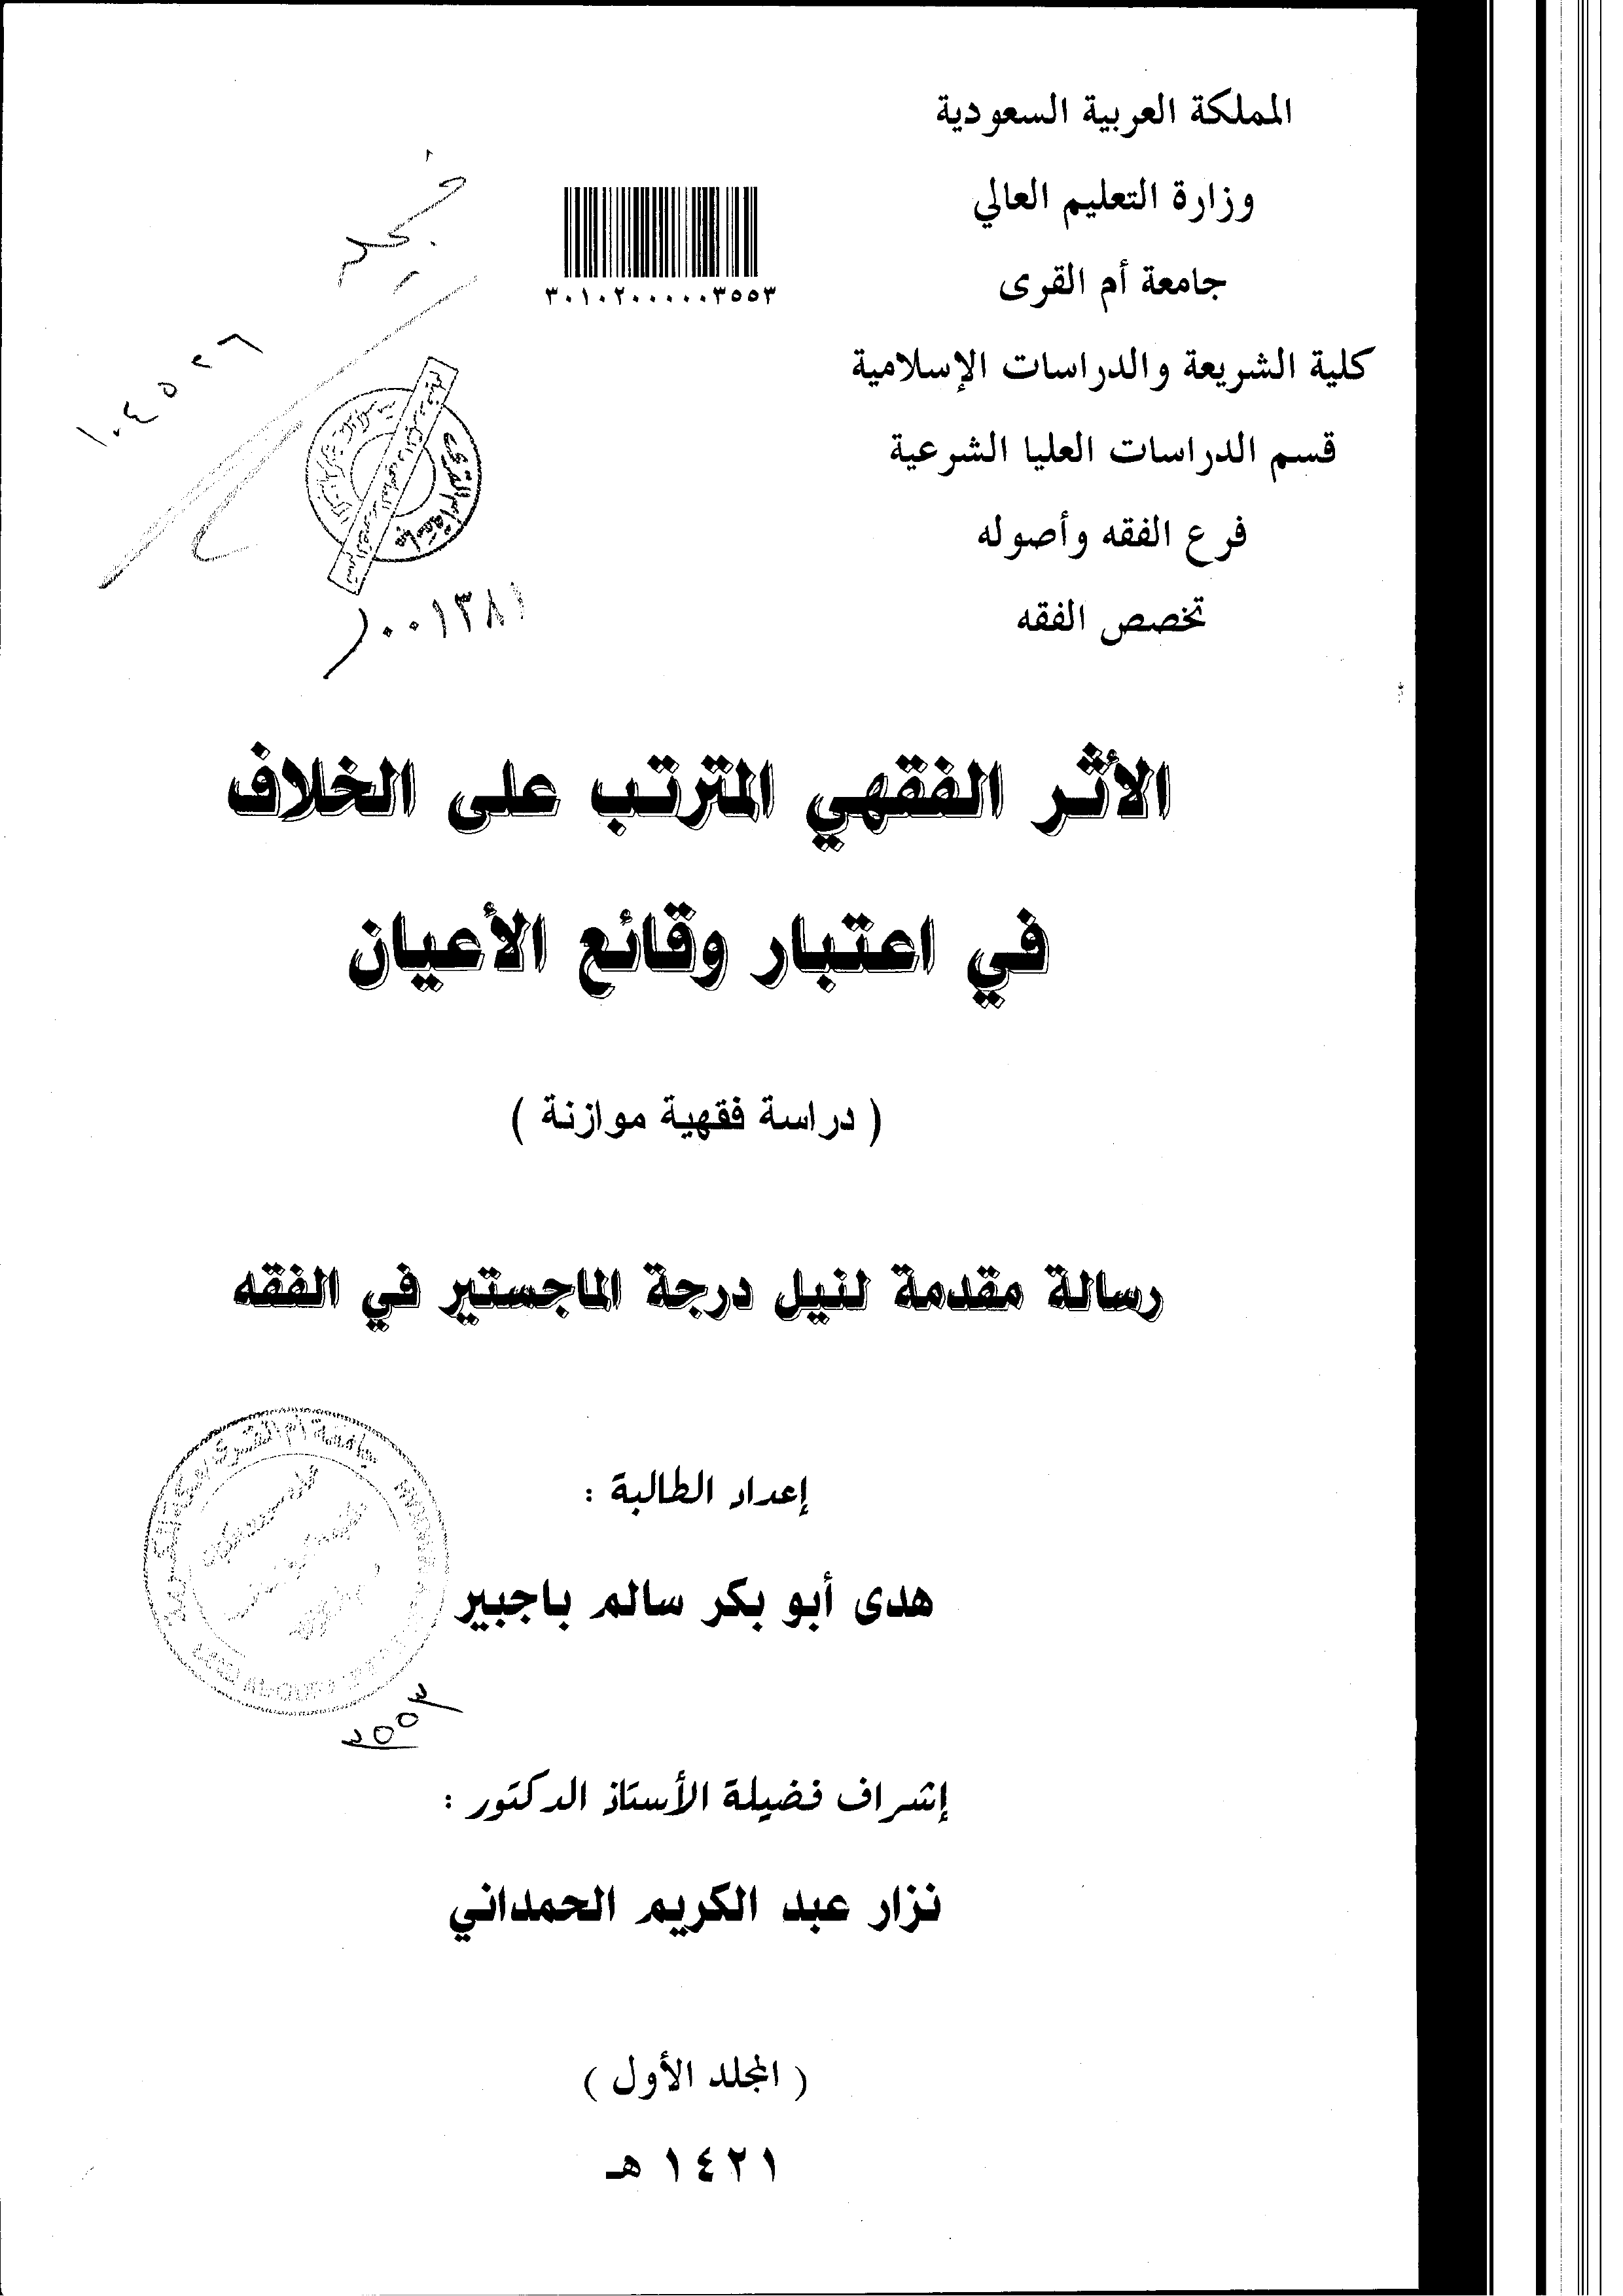 المملكة العربية السعودية
وزارة التعليم العالي
جامعة أم القرى
كلية الشريعة والدراسات الإسلامية
قسم الدراسات العليا الشرعية
فرع الفقه وأصوله
تخصص الفقه
٣٠١٠٢٠٠٠٠٠٣٥٥٣
١٠٤٥٢٦
جامعة أم القرى
٠٠١٣٨١
الأثر الفقهي المترتب على الخلاف
في اعتبار وقائع الأعيان
( دراسة فقهية موازنة )
رسالة مقدمة لنيل درجة الماجستير في الفقه
جامعة أم القرى
إعداد الطالبة :
هدى أبو بكر سالم باجبير
٣٥٥٣
إشراف فضيلة الأستاذ الدكتور :
نزار عبد الكريم الحمداني
( المجلد الأول )
١٤٢١ هـ